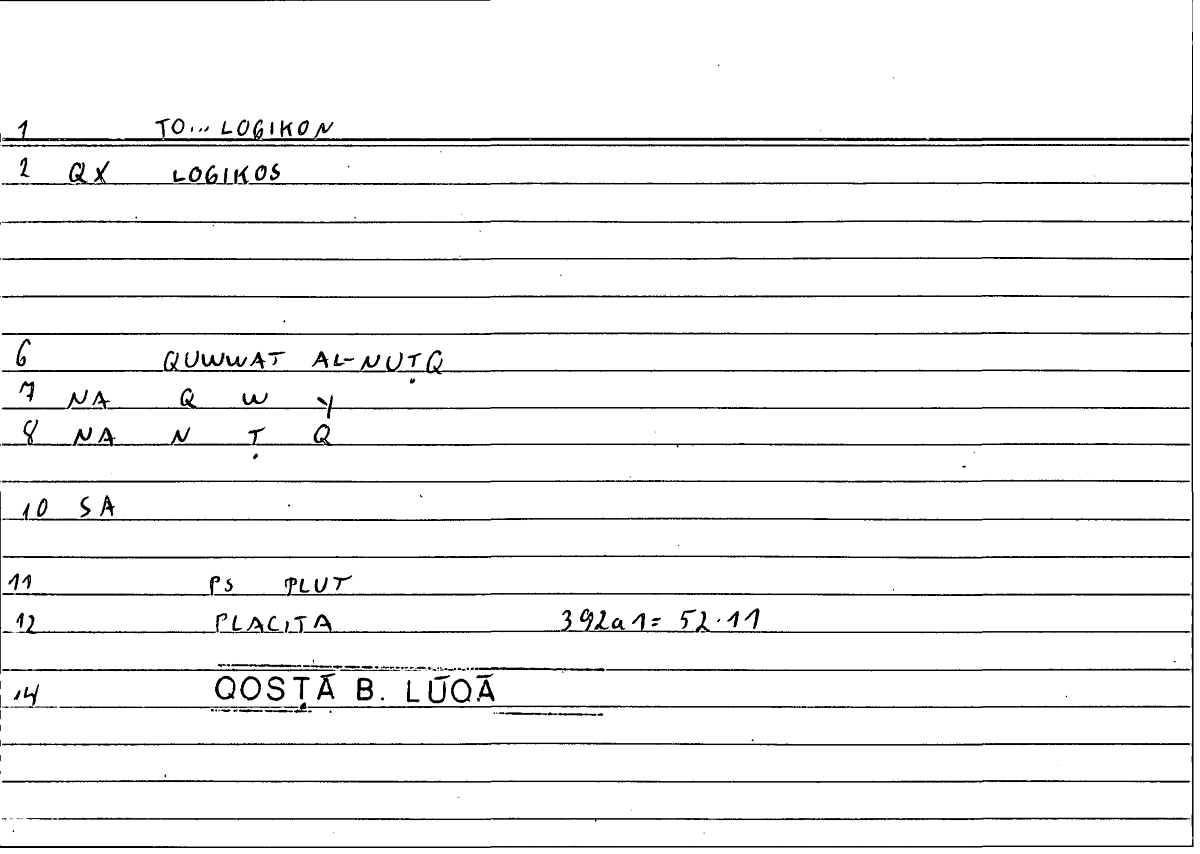 1 TO... LOGIKON
2 QX LOGIKOS
6 QUWWAT AL-NUṬQ
7 NA Q W Y
8 NA N Ṭ Q
10 SA
11 PS PLUT
12 PLACITA 392a1= 52.11
14 QOSṬĀ B. LŪQĀ